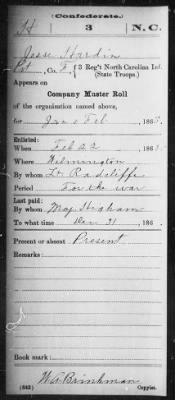 (Confederate.)
H 3 N.C.
Jesse Hardin
Co. F, 3 Reg't North Carolina Inf.
(State Troops.)
Appears on
Company Muster Roll
of the organization named above,
for Jan & Feb, 186
Enlisted:
When Feb 22, 186
Where Wilmington
By whom Lt. Radcliffe
Period For the war
Last paid:
By whom Maj Higham
To what time Dec 31, 186
Present or absent Present
Remarks:
Book mark:
W A Brinkman
(642) Copyist.